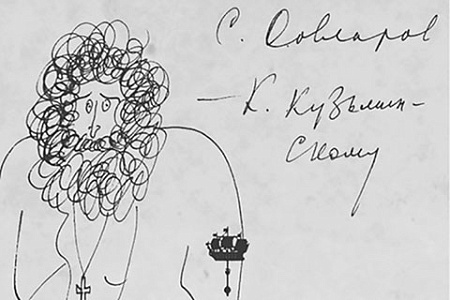 С. Довлатов
— К. Кузьмин-
скому